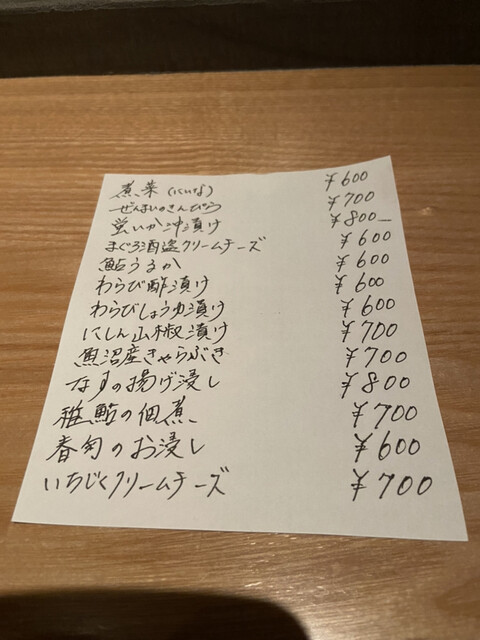 煮菜(にいな) ¥600
ぜんまいのきんぴら ¥700
蛍いか沖漬け ¥800
まぐろ酒盗クリームチーズ ¥600
鮎うるか ¥600
わらび酢漬け ¥600
わらびしょうゆ漬け ¥600
にしん山椒漬け ¥700
魚沼産きゃらぶき ¥700
なすの揚げ浸し ¥800
稚鮎の佃煮 ¥700
春旬のお浸し ¥600
いちじくクリームチーズ ¥700